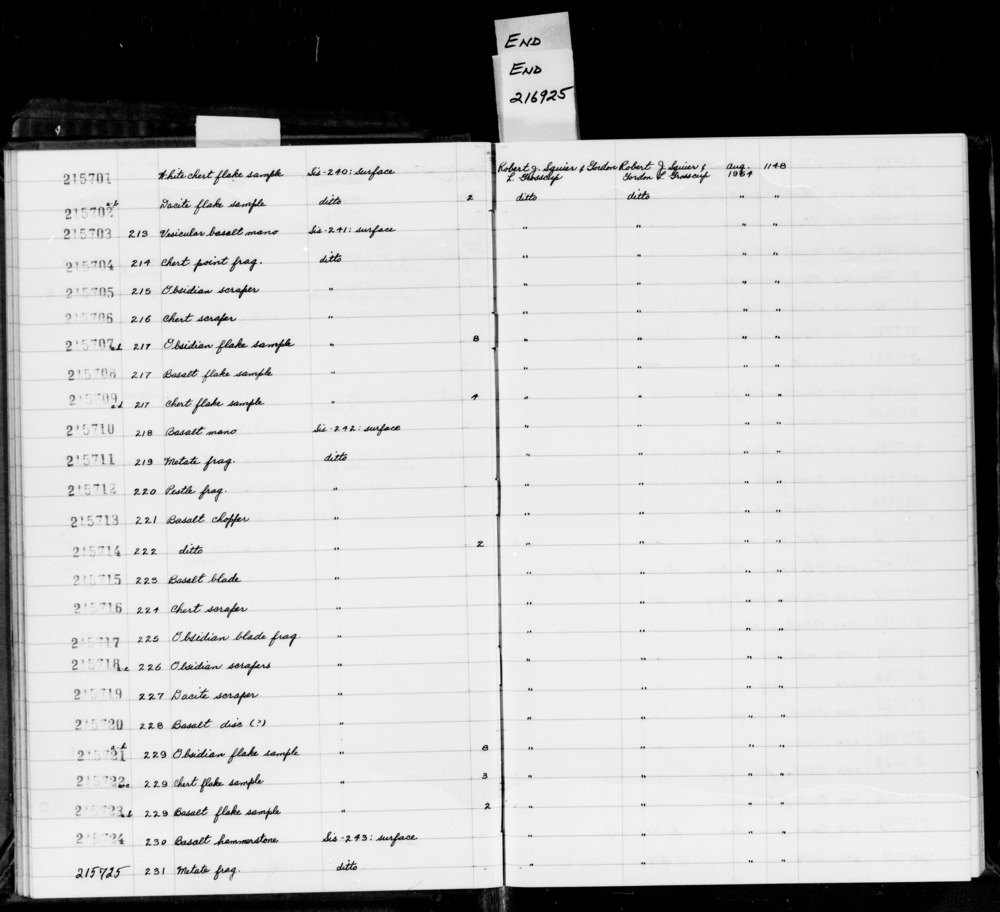 END
END
216925
215701 White chert flake sample Sis-240: surface Robert J. Squier & Gordon L. Grosscup Robert J. Squier & Gordon L. Grosscup Aug. 1964 1148
215702 a-b Dacite flake sample ditto 2 ditto ditto " "
215703 213 Vesicular basalt mano Sis-241: surface " " " "
215704 214 Chert point frag. ditto " " " "
215705 215 Obsidian scraper " " " " "
215706 216 Chert scraper " " " " "
215707 217 Obsidian flake sample " 8 " " " "
215708 217 Basalt flake sample " " " " "
215709 217 Chert flake sample " 4 " " " "
215710 218 Basalt mano Sis-242: surface " " " "
215711 219 Metate frag. ditto " " " "
215712 220 Pestle frag. " " " " "
215713 221 Basalt chopper " " " " "
215714 222 ditto " 2 " " " "
215715 223 Basalt blade " " " " "
215716 224 Chert scraper " " " " "
215717 225 Obsidian blade frag. " " " " "
215718 226 Obsidian scrapers " " " " "
215719 227 Dacite scraper " " " " "
215720 228 Basalt disc (?) " " " " "
215721 229 Obsidian flake sample " 8 " " " "
215722 229 Chert flake sample " 3 " " " "
215723 229 Basalt flake sample " 2 " " " "
215724 230 Basalt hammerstone Sis-243: surface " " " "
215725 231 Metate frag. ditto " " " "